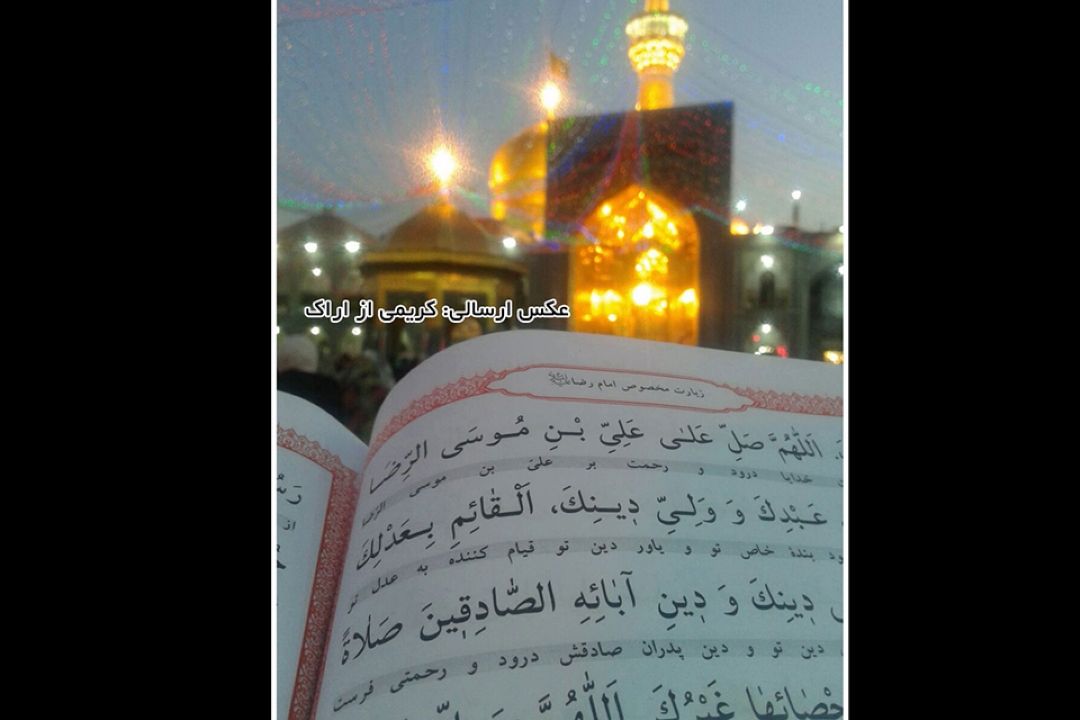 عکس ارسالی: کریمی از اراک
زیارت مخصوص امام رضا
اَللّٰهُمَّ صَلِّ عَلىٰ عَلِيِّ بْنِ مُوسَى الرِّضَا
خدایا درود و رحمت بر علی بن موسی الرّضا
عَبْدِكَ وَ وَلِيِّ دِينِكَ، اَلْقٰائِمِ بِعَدْلِكَ
بندهٔ خاص تو و یاور دین تو قیام کننده به عدل تو
دِينِكَ وَ دِينِ آبٰائِهِ الصّٰادِقِينَ صَلٰاةً
دین تو و دین پدران صادقش درود و رحمتی فرست
غَيْرُكَ اَللّٰهُمَّ